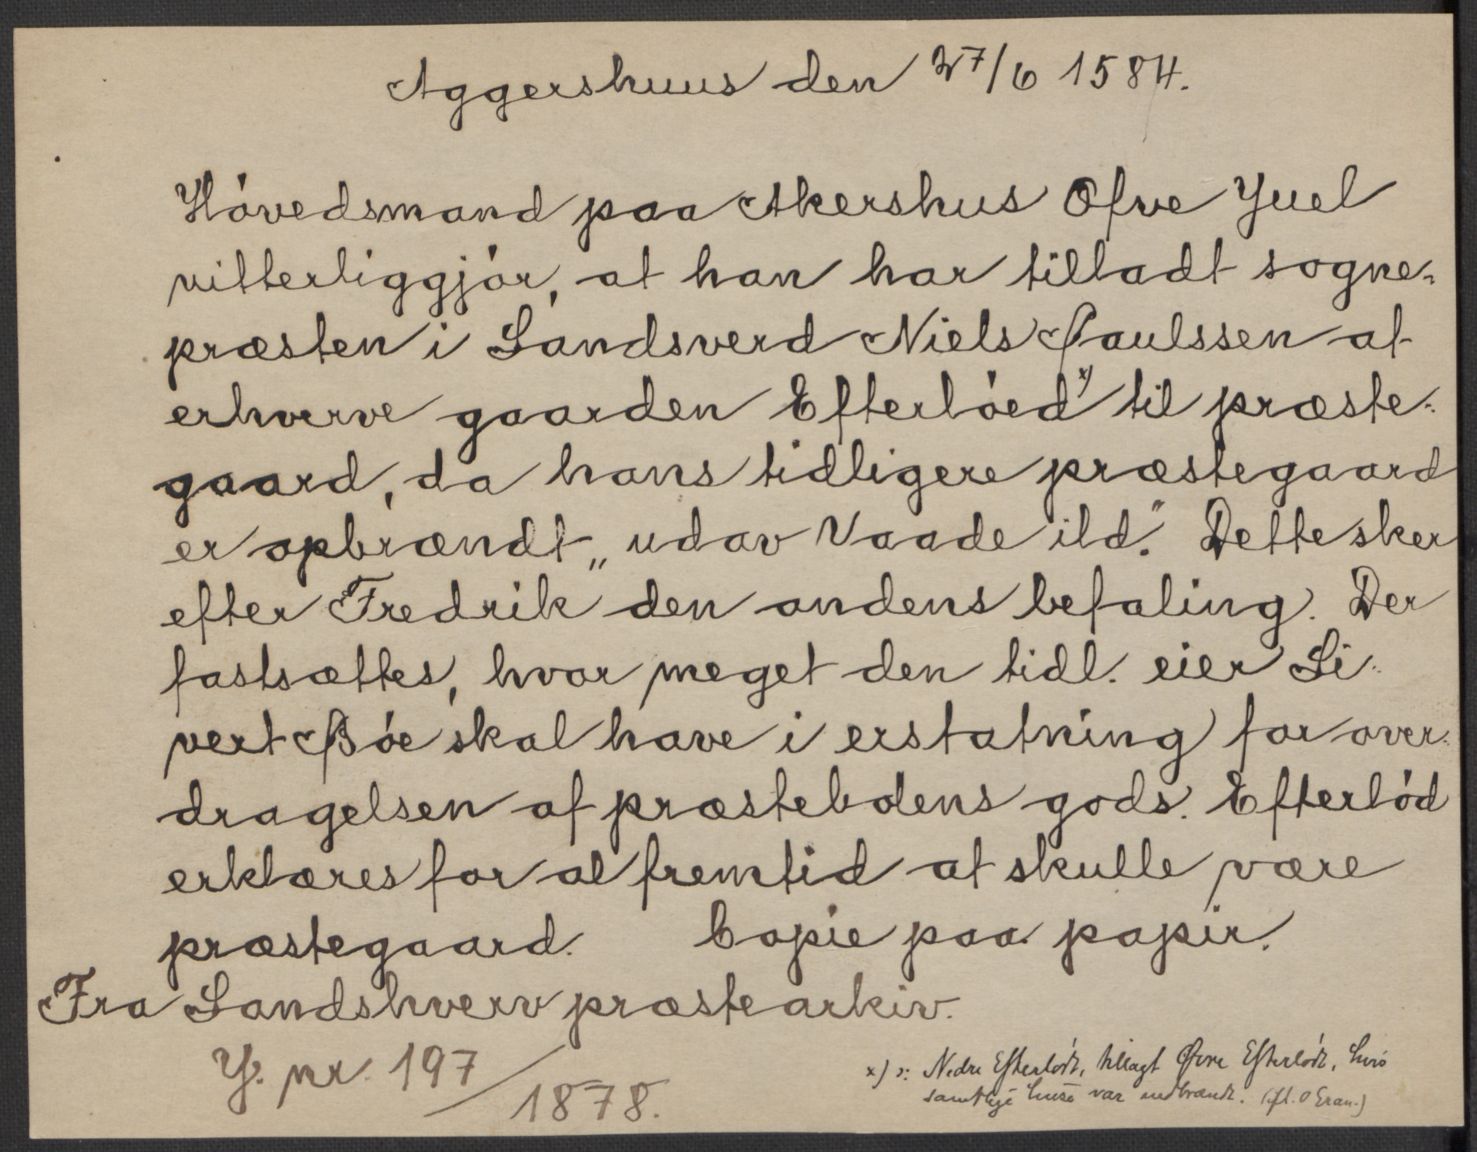 Aggershuus den 27/6 1584.
Hóvedsmand paa Akershus Ofve Juel
vitterliggjór, at han har tilladt sogne-
præsten i Sandsverd Niels Paulssen at
erhverve gaarden Efterlóed x) til præste-
gaard, da hans tidligere præstegaard
er opbrændt „udav Vaade ild." Dette sker
efter Fredrik den andens befaling. Der
fastsættes, hvor meget den tidl. eier Si-
vert Bóe skal have i erstatning for over-
dragelsen af præstebolens gods. Efterlód
erklæres for al fremtid at skulle være
præstegaard. Copie paa papir.
Fra Sandshverv præstearkiv.
J. nr. 197/1878.
x) ɔ: Nedre Efterlódt, tillagt Øvre Efterlódt, hvis
samtlige huse var nedbrændt. (